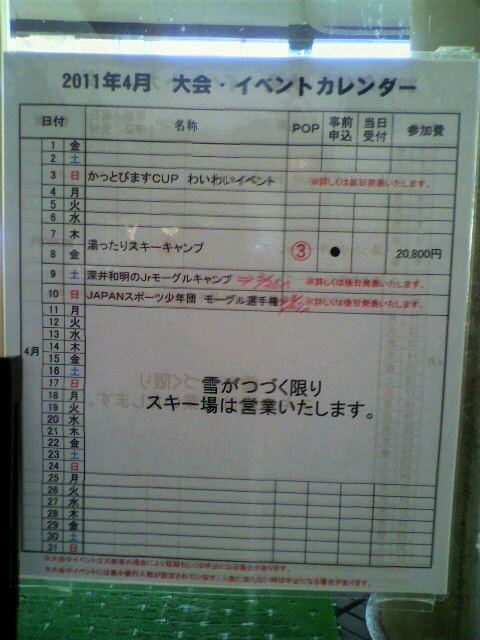 2011年4月 大会・イベントカレンダー
日付 名称 POP 事前申込 当日受付 参加費
4月
1 金
2 土
3 日 かっとびますCUP わいわいイベント ※詳しくは後日発表いたします。
4 月
5 火
6 水
7 木
湯ったりスキーキャンプ ③ ● 20,800円
8 金
9 土 深井和明のJrモーグルキャンプ ※詳しくは後日発表いたします。
10 日 JAPANスポーツ少年団 モーグル選手権 ※詳しくは後日発表いたします。
11 月
12 火
13 水
14 木
15 金
16 土
17 日
18 月
19 火
20 水
21 木
22 金
23 土
24 日
雪がつづく限り
スキー場は営業いたします。
25 月
26 火
27 水
28 木
29 金
30 土
31 日
※大会やイベントは天候等の理由により延期もしくは中止になる場合があります。
※大会やイベントには最小催行人数が設定されています。人数に満たない時は中止になる場合があります。